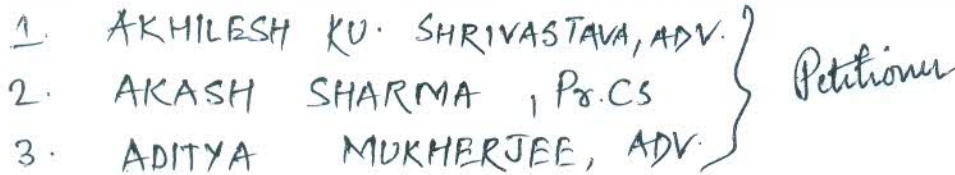 1. AKHILESH KU. SHRIVASTAVA, ADV.
2. AKASH SHARMA, Pr.CS
3. ADITYA MUKHERJEE, ADV.
Petitioner